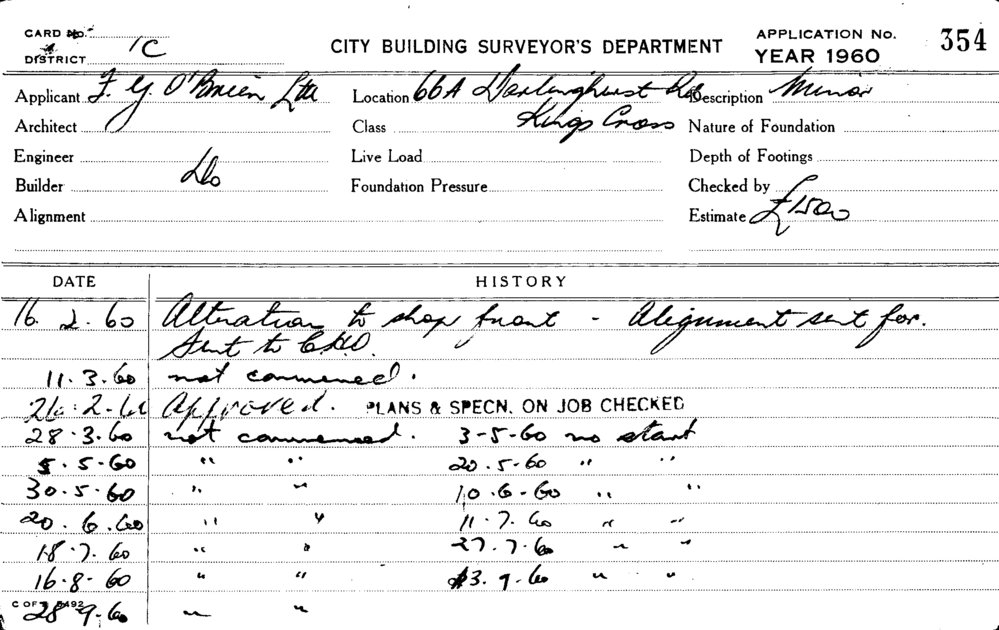 CARD No.
DISTRICT 1C
CITY BUILDING SURVEYOR'S DEPARTMENT
APPLICATION No. 354
YEAR 1960
Applicant F. G. O'Brien Ltd Location 66A Darlinghurst Rd Description Minor
Architect Class Kings Cross Nature of Foundation
Engineer Live Load Depth of Footings
Builder Do Foundation Pressure Checked by
Alignment Estimate £1500
DATE HISTORY
16.2.60 Alteration to shop front - Alignment sent for.
Sent to C.H.O.
11.3.60 not commenced.
26.2.60 Approved. PLANS & SPECN. ON JOB CHECKED
28.3.60 not commenced. 3-5-60 no start
5.5-60 " " 20.5-60 " "
30.5.60 " " 10.6-60 " "
20.6.60 " " 11.7.60 " "
18.7.60 " " 27.7.60 " "
16.8-60 " " 13.9.60 " "
28 9.60 " "